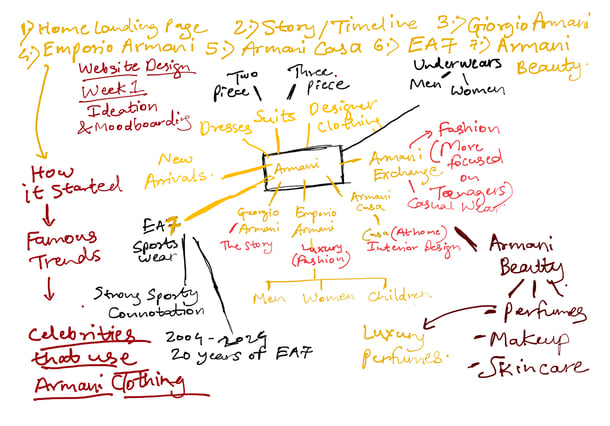 1) Home Landing Page 2:) Story/Timeline 3:) Giorgio Armani
4:) Emporio Armani 5:) Armani Casa 6:) EA7 7:) Armani
Beauty.
Website Design
Week 1
Ideation
& Moodboarding
Two
piece
Three
piece
Underwears
Men
Women
Dresses
Suits
Designer
Clothing
New
Arrivals.
Armani
Armani
Exchange
Fashion
(More
focused
on
Teenagers)
Casual Wear
How
it started
Famous
Trends
Celebrities
that use
Armani Clothing
EA7
Sports
wear
Strong Sporty
Connotation
2004-2024
20 years of EA7
Giorgio
Armani
The Story
Emporio
Armani
Luxury
(Fashion)
Men Women Children
Armani
Casa
Casa (At home)
Interior Design
Armani
Beautty
- Perfumes
- Makeup
- Skincare
Luxury
Perfumes.